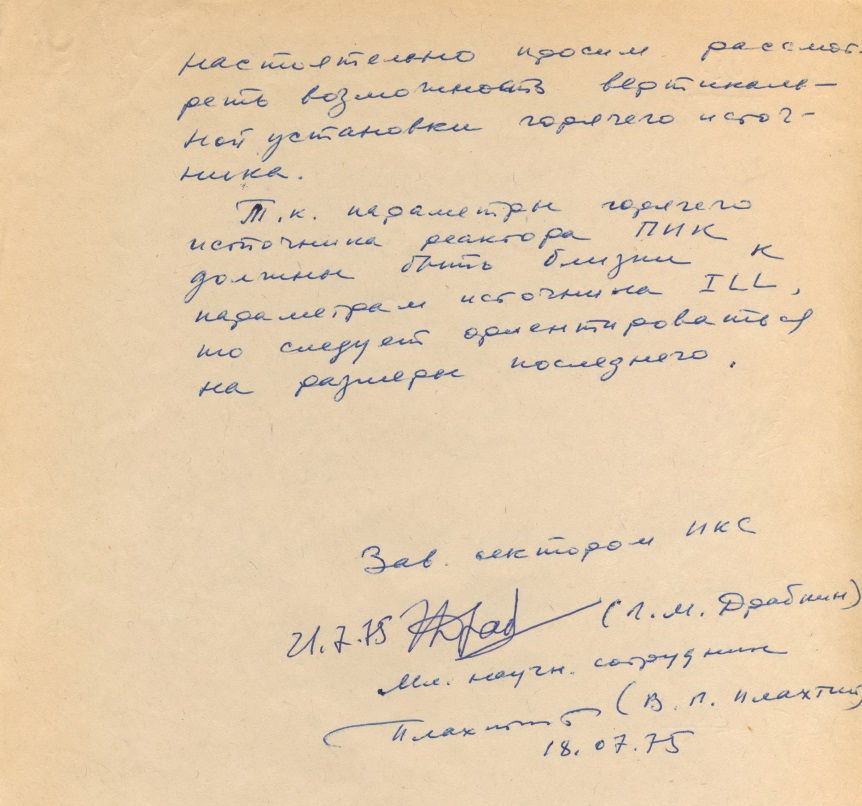 настоятельно просим рассмот-
реть возможность вертикаль-
ной установки горячего источ-
ника.
Т.к. параметры горячего
источника реактора ПИК
должны быть близки к
параметрам источника ILL,
то следует ориентироваться
на размеры последнего.
Зав. сектором НКС
21.7.75 (Г.М. Драбкин)
Мл. научн. сотрудник
Плахтий (В.П. Плахтий
18.07.75